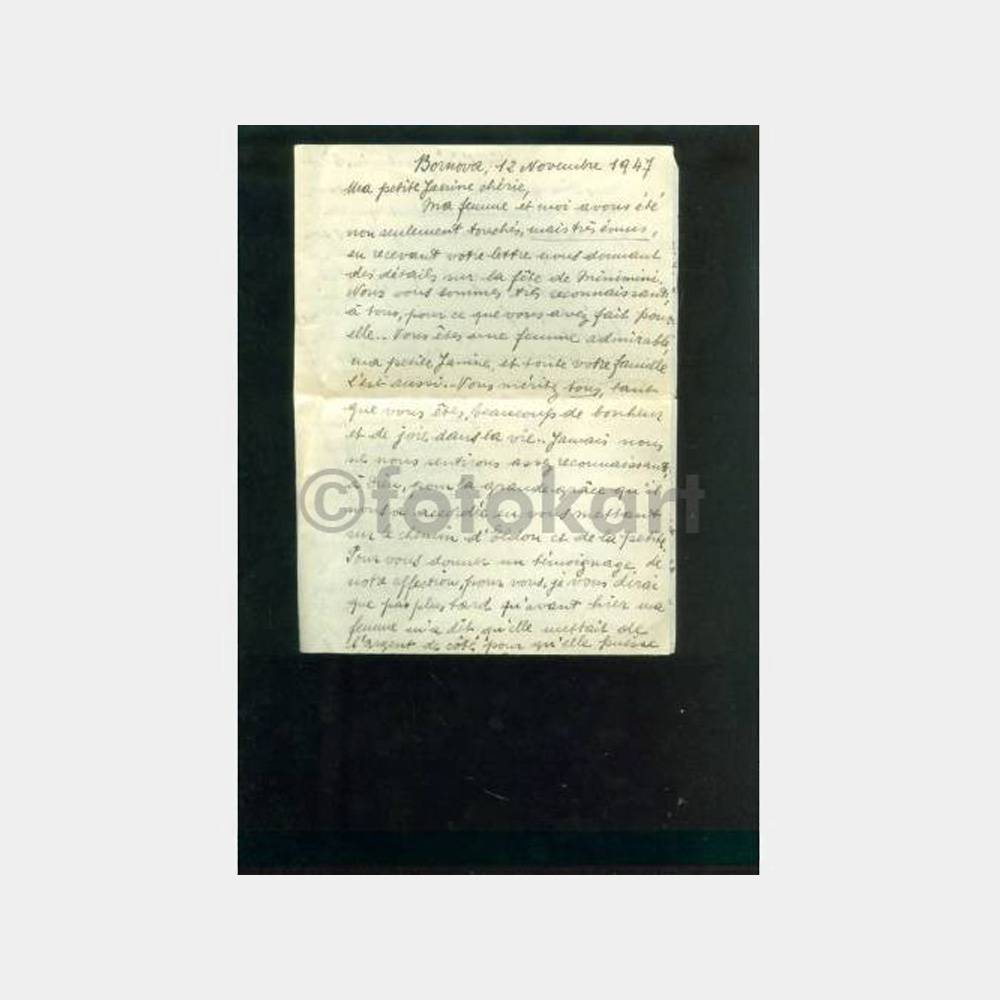 Bornova, 12 Novembre 1947
Ma petite Janine chérie,
Ma femme et moi avons été
non seulement touchés, mais très émus,
en recevant votre lettre nous donnant
des détails sur la fête de Minimini.
Nous vous sommes très reconnaissants,
à tous, pour ce que vous avez fait pour
elle.. Vous êtes une femme admirable,
ma petite Janine, et toute votre famille
l'est aussi. Vous méritez tous, tant
que vous êtes, beaucoup de bonheur
et de joie dans la vie.. Jamais nous
ne nous sentirons assez reconnaissants
à Dieu, pour la grande grâce qu'il
nous a accordée en vous mettant
sur le chemin d' et de la petite.
Pour vous donner un témoignage de
notre affection, pour vous, je vous dirai
que pas plus tard qu'avant hier ma
femme m'a dit qu'elle mettait de
l'argent de côté pour qu'elle puisse
©fotokart